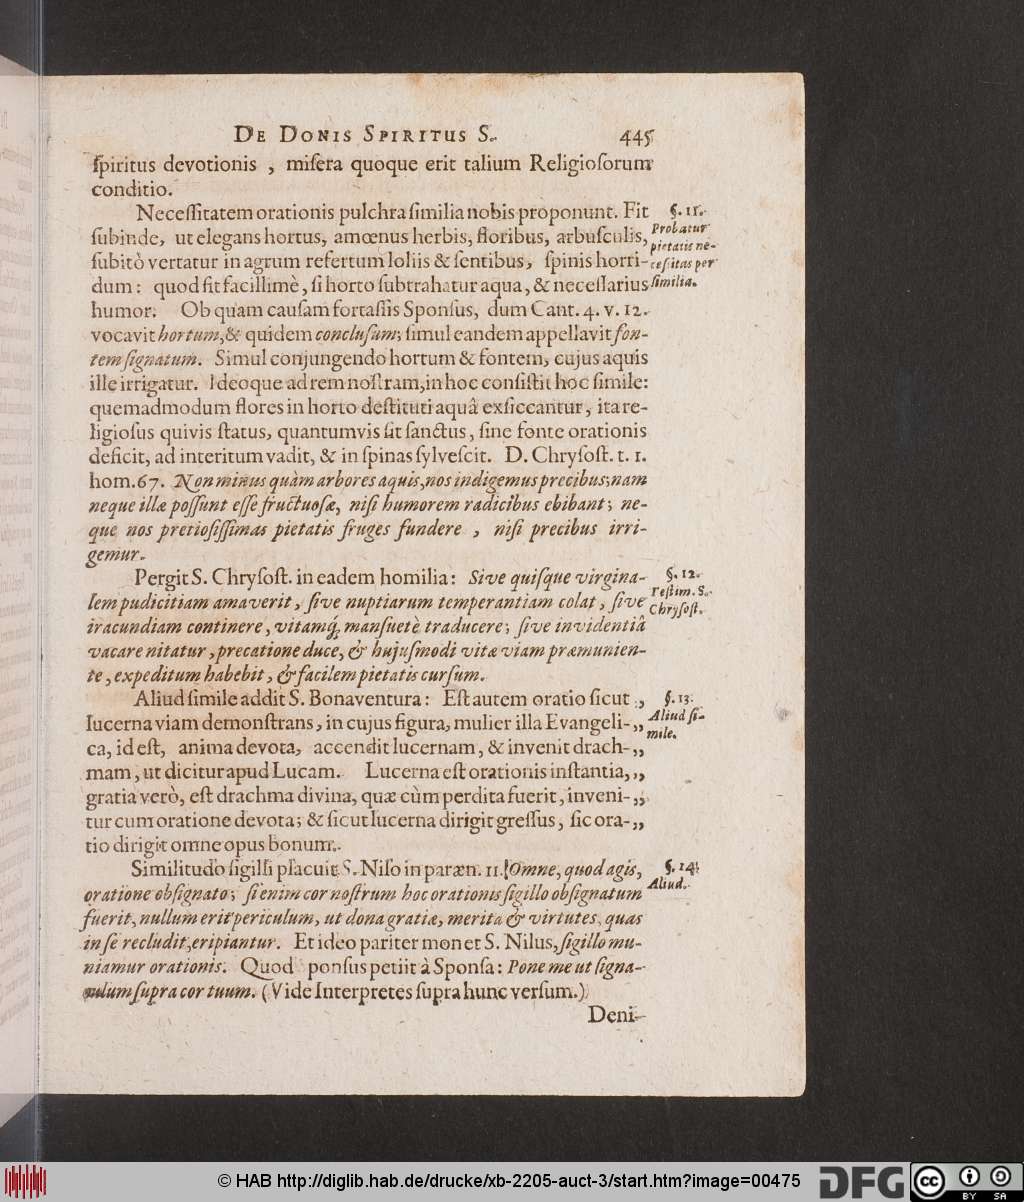 DE DONIS SPIRITUS S. 445
ſpiritus devotionis , miſera quoque erit talium Religioſorum
conditio.
Neceſſitatem orationis pulchra ſimilia nobis proponunt. Fit §. 11.
ſubinde, ut elegans hortus, amœnus herbis, floribus, arbuſculis, Probatur
ſubitò vertatur in agrum refertum loliis & ſentibus, ſpinis horri- pietatis ne-
dum: quod fit facillimè, ſi horto ſubtrahatur aqua, & neceſſarius ceſſitas per
humor. Ob quam cauſam fortaſſis Sponſus, dum Cant. 4. v. 12. ſimilia.
vocavit hortum, & quidem concluſum; ſimul eandem appellavit fon-
tem ſignatum. Simul conjungendo hortum & fontem, cujus aquis
ille irrigatur. Ideoque ad rem noſtram, in hoc conſiſtit hoc ſimile:
quemadmodum flores in horto deſtituti aquâ exſiccantur, ita re-
ligioſus quivis ſtatus, quantumvis ſit ſanctus, ſine fonte orationis
deficit, ad interitum vadit, & in ſpinas ſylveſcit. D. Chryſoſt. t. 1.
hom. 67. Non minus quàm arbores aquis, nos indigemus precibus; nam
neque illæ poſſunt eſſe fructuoſæ, niſi humorem radicibus ebibant; ne-
que nos pretioſiſſimas pietatis fruges fundere , niſi precibus irri-
gemur.
Pergit S. Chryſoſt. in eadem homilia: Sive quiſque virgina- §. 12.
lem pudicitiam amaverit, ſive nuptiarum temperantiam colat, ſive Teſtim. S.
iracundiam continere, vitamq́; manſuetè traducere; ſive invidentiâ Chryſoſt.
vacare nitatur, precatione duce, & hujuſmodi vitæ viam præmunien-
te, expeditum habebit, & facilem pietatis curſum.
Aliud ſimile addit S. Bonaventura: Eſt autem oratio ſicut ,, §. 13.
lucerna viam demonſtrans, in cujus figura, mulier illa Evangeli- ,, Aliud ſi-
ca, id eſt, anima devota, accendit lucernam, & invenit drach- ,, mile.
mam, ut dicitur apud Lucam. Lucerna eſt orationis inſtantia, ,,
gratia verò, eſt drachma divina, quæ cùm perdita fuerit, inveni- ,,
tur cum oratione devota; & ſicut lucerna dirigit greſſus, ſic ora- ,,
tio dirigit omne opus bonum.
Similitudo ſigilli placuit S. Nilo in paræn. 11. Omne, quod agis, §. 14.
oratione obſignato; ſi enim cor noſtrum hoc orationis ſigillo obſignatum Aliud.
fuerit, nullum erit periculum, ut dona gratiæ, merita & virtutes, quas
in ſe recludit, eripiantur. Et ideo pariter monet S. Nilus, ſigillo mu-
niamur orationis. Quod ponſus petiit à Sponſa: Pone me ut ſigna-
culum ſupra cor tuum. (Vide Interpretes ſupra hunc verſum.)
Deni-
© HAB http://diglib.hab.de/drucke/xb-2205-auct-3/start.htm?image=00475 DFG cc BY SA